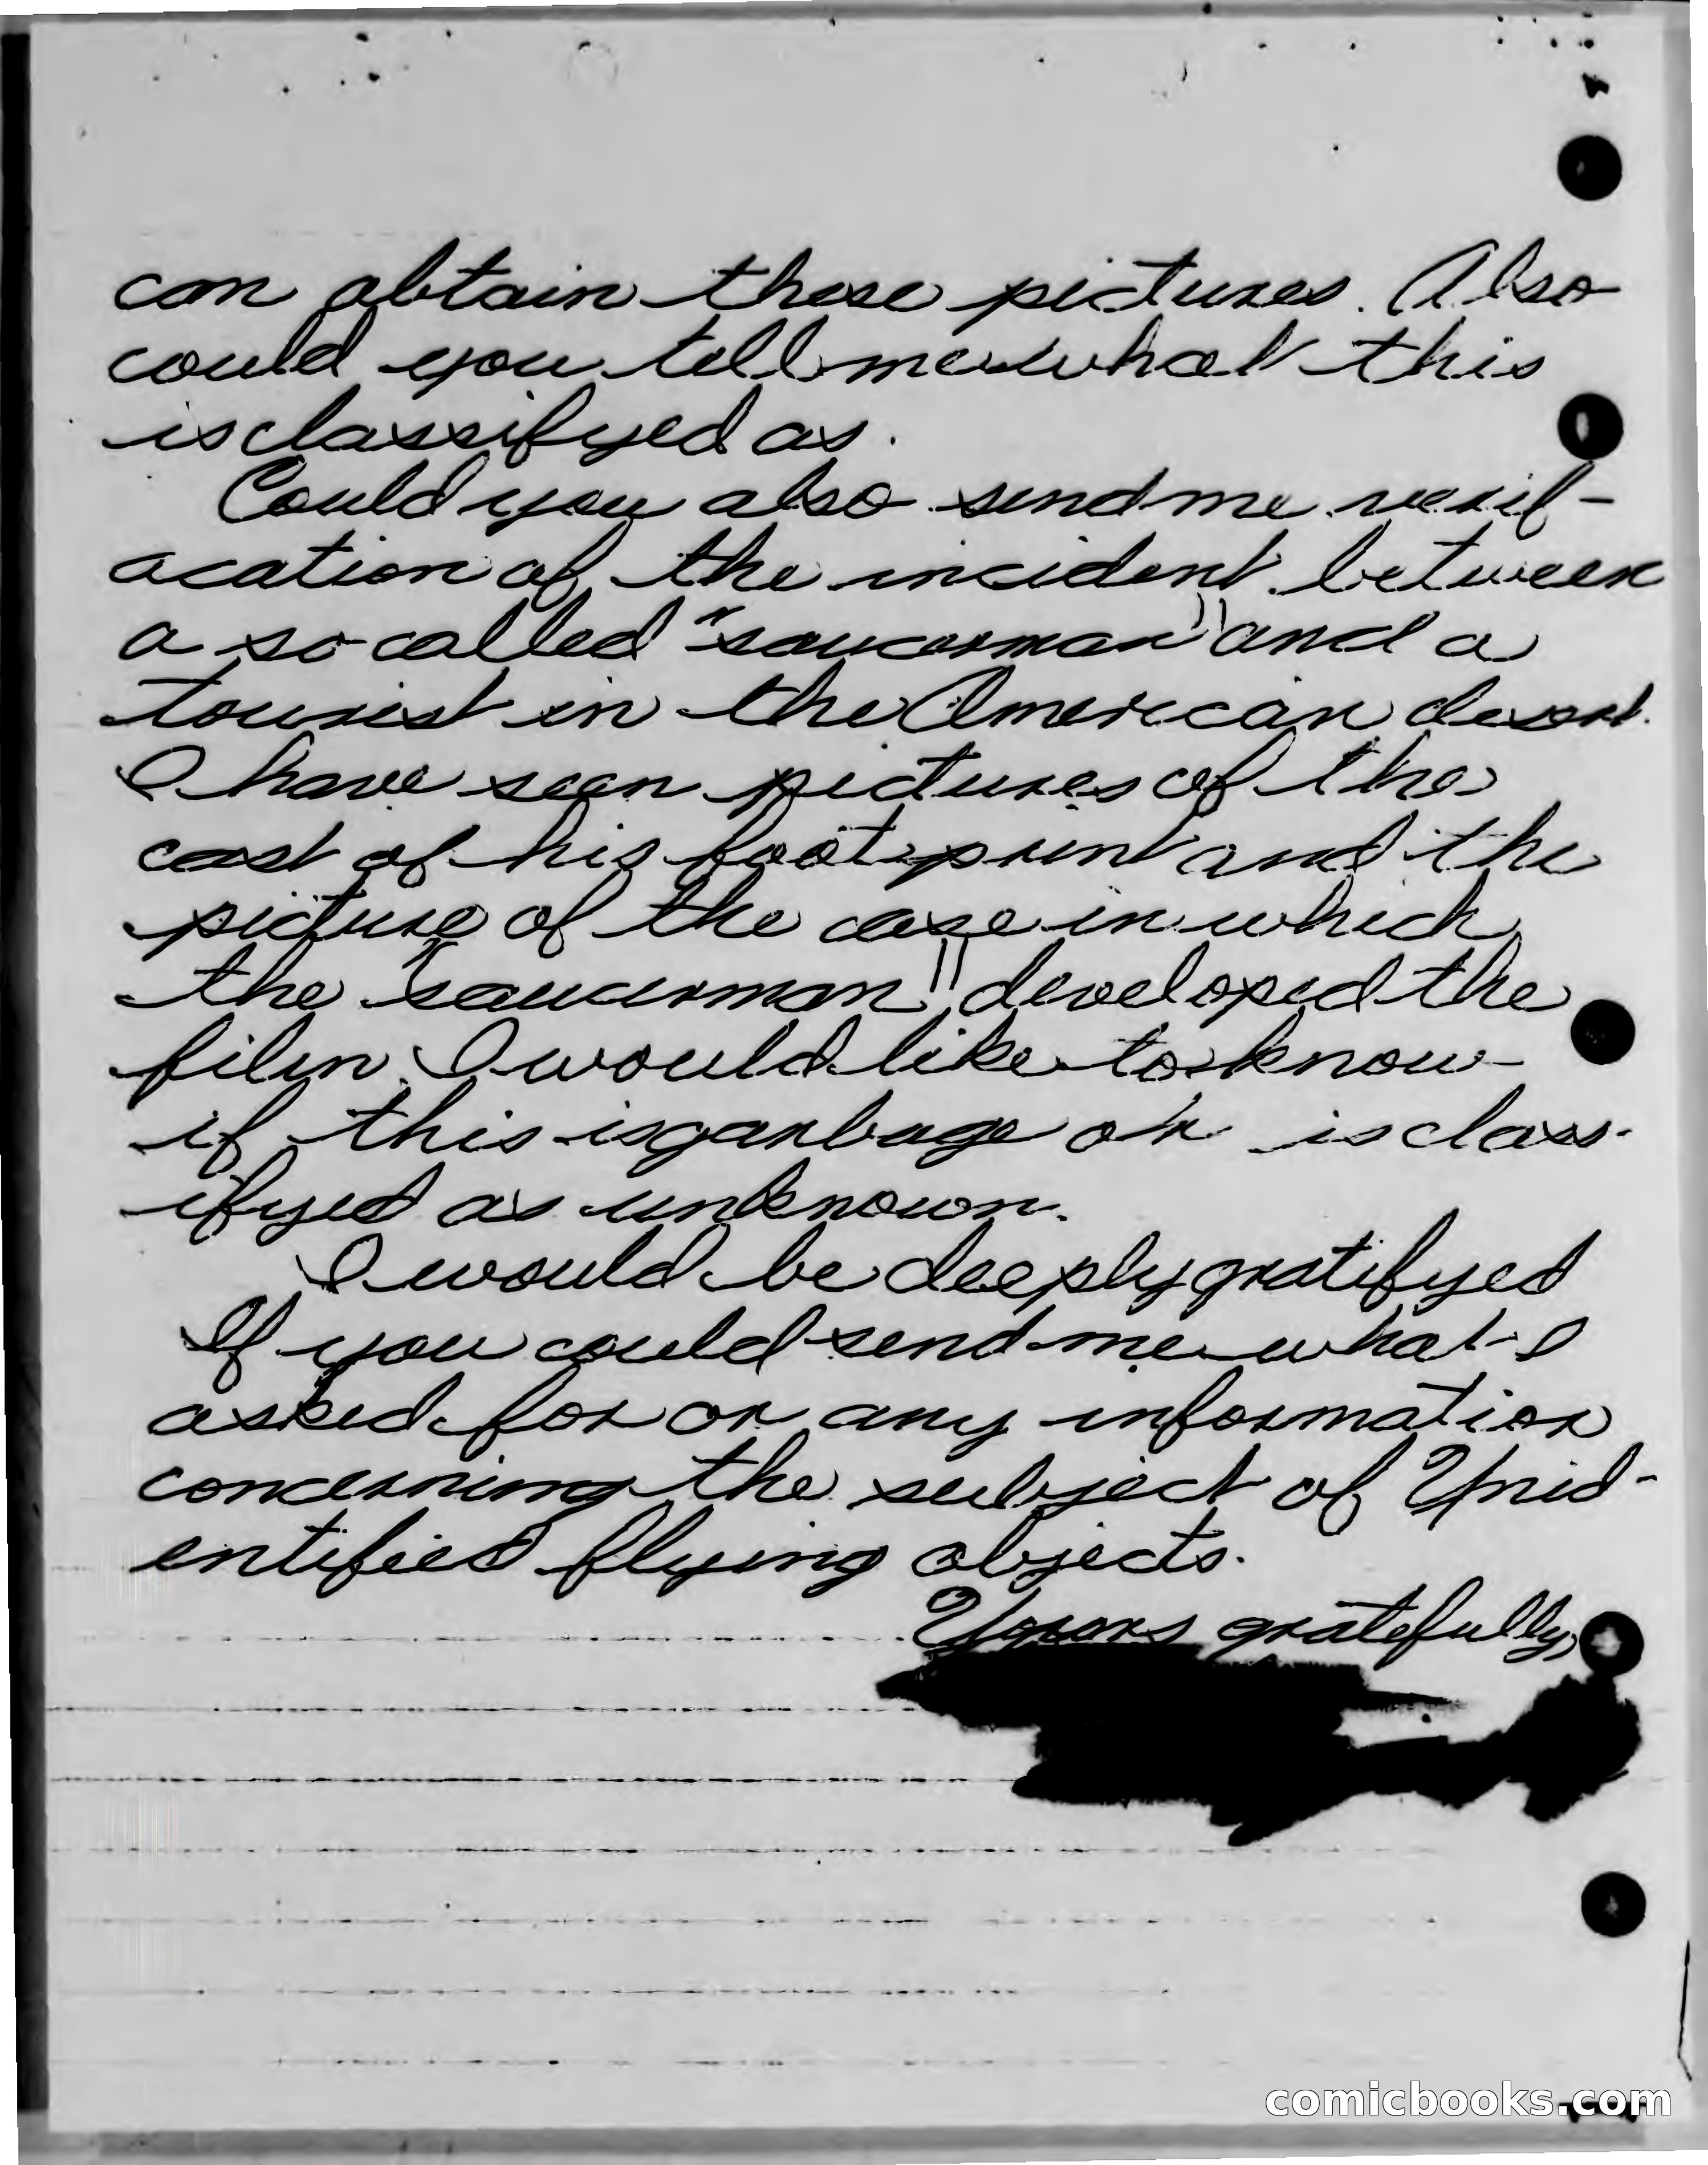 can obtain these pictures. Also
could you tell me what this
is classifyed as.
Could you also send me verif-
acation of the incident between
a so-called "saucerman" and a
tourist in the American desert.
I have seen pictures of the
cast of his foot print and the
picture of the case in which
the "saucerman" developed the
film. I would like to know
if this is garbage or is class-
ifyed as unknown.
I would be deeply gratifyed
If you could send me what I
asked for or any information
concerning the subject of Unid-
entified flying objects.
Yours gratefully,
comicbooks.com